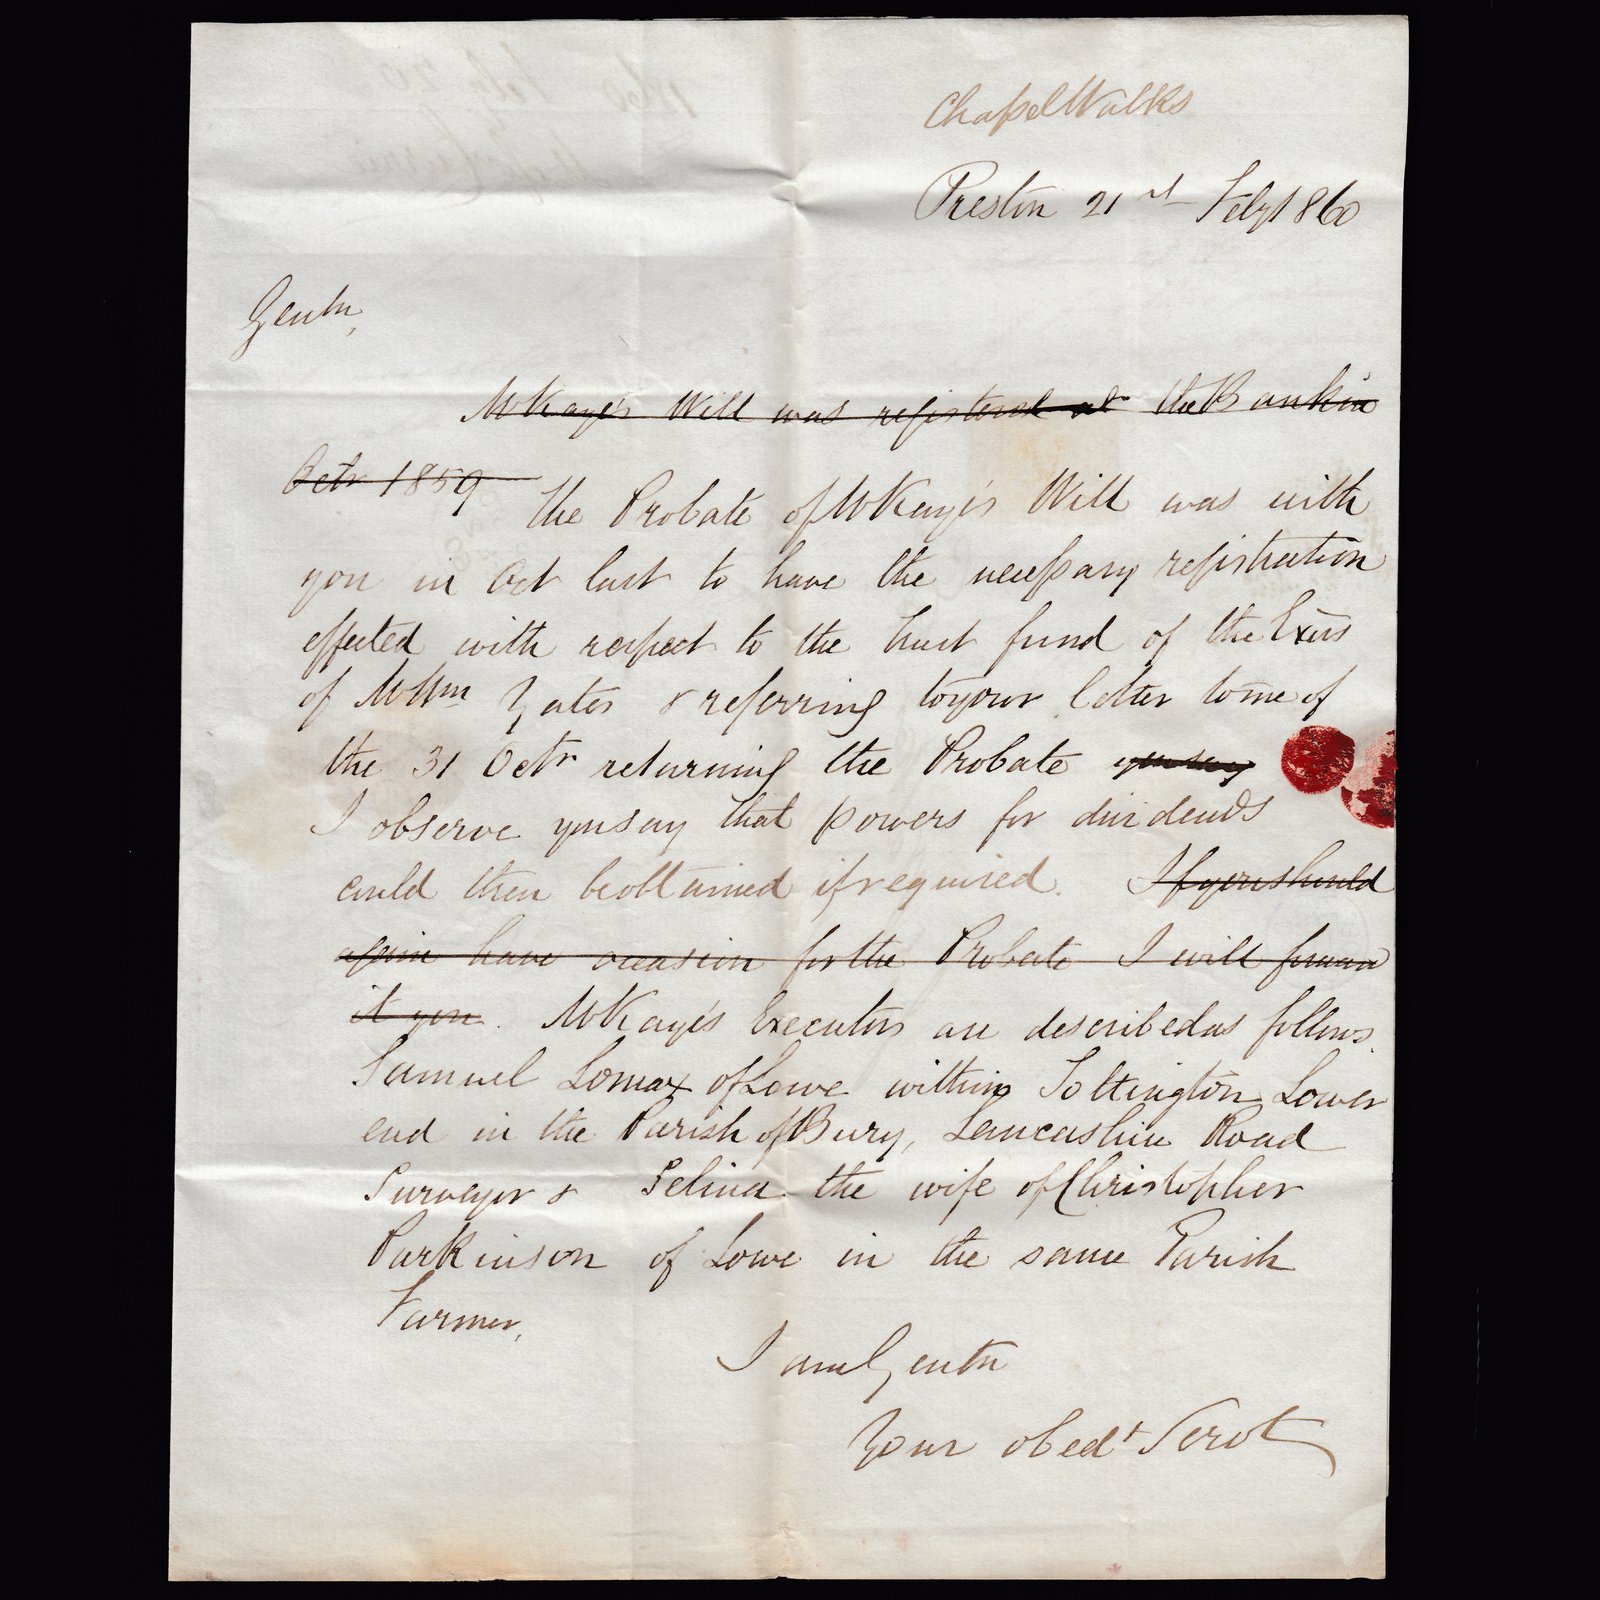 Chapel Walks
Preston 21st Feby 1860
Gentn,
Mr Kaye's Will was registered at the Bank in
Octr 1859
The Probate of Mr Kaye's Will was with
you in Oct last to have the necessary registration
effected with respect to the trust fund of the Exors
of Mr Wm Yates & referring to your letter to me of
the 31 Octr returning the Probate you say
I observe you say that powers for dividends
could then be obtained if required. If you should
again have occasion for the Probate I will forward
it you. Mr Kaye's Executors are described as follows.
Samuel Lomax of Lowe within Tottington Lower
end in the Parish of Bury, Lancashire Road
Surveyor & Selina the wife of Christopher
Parkinson of Lowe in the same Parish
Farmer,
I am Gentn
Your obedt Servt